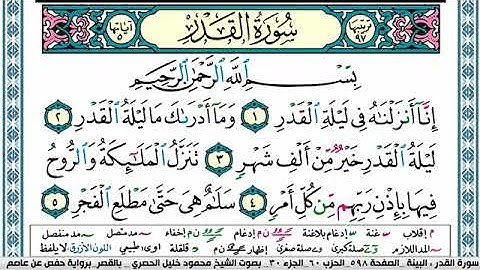 ترتيبها ٩٧
سُورَةُ القَدْرِ
آياتها ٥
بِسْمِ ٱللَّهِ ٱلرَّحْمَٰنِ ٱلرَّحِيمِ
إِنَّآ أَنزَلْنَٰهُ فِى لَيْلَةِ ٱلْقَدْرِ ١ وَمَآ أَدْرَىٰكَ مَا لَيْلَةُ ٱلْقَدْرِ ٢
لَيْلَةُ ٱلْقَدْرِ خَيْرٌ مِّنْ أَلْفِ شَهْرٍ ٣ تَنَزَّلُ ٱلْمَلَٰٓئِكَةُ وَٱلرُّوحُ
فِيهَا بِإِذْنِ رَبِّهِم مِّن كُلِّ أَمْرٍ ٤ سَلَٰمٌ هِىَ حَتَّىٰ مَطْلَعِ ٱلْفَجْرِ ٥
م إقلاب غنة إدغام بلاغنة إدغام إخفاء مد متصل مد منفصل
مد اللازم صلة كبرى صلة صغرى إظهار قلقلة اوى، طبيعي اللون الأزرق لا يلفظ
سورة القدر ، البينة _ الصفحة ٥٩٨_ الحزب ٦٠_ الجزء ٣٠ _ بصوت الشيخ محمود خليل الحصري _ بالقصر_برواية حفص عن عاصم